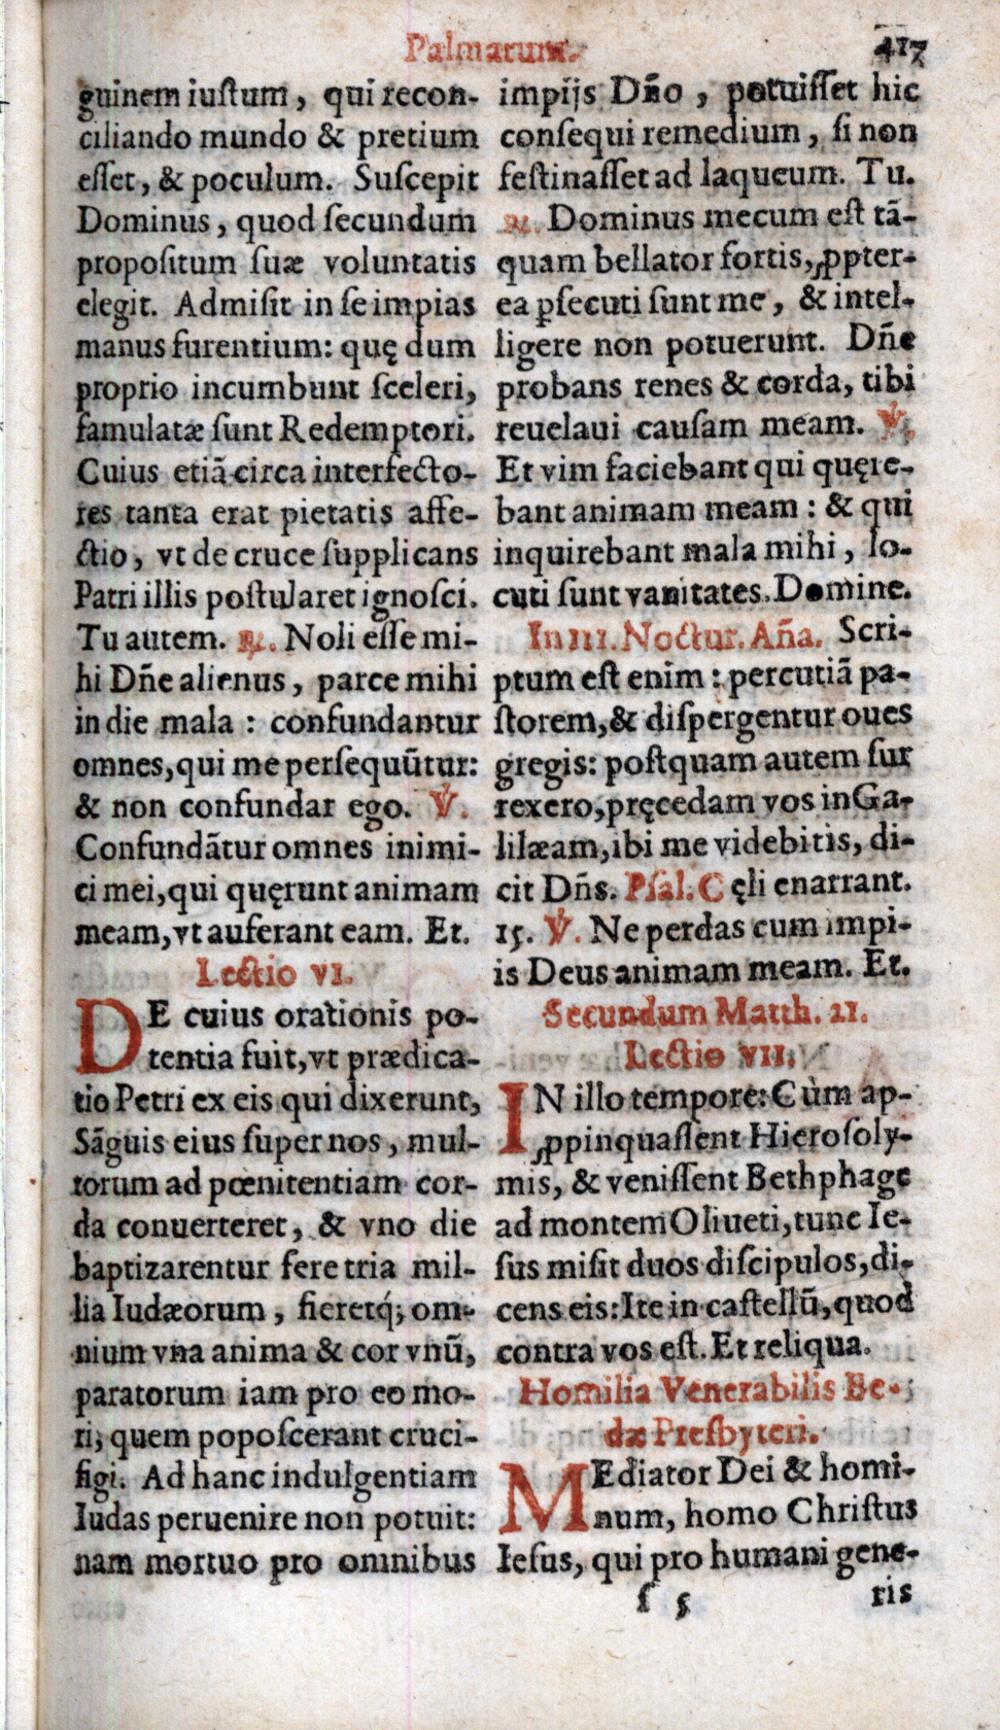 Palmarum.
417
guinem iuſtum, qui recon-
ciliando mundo & pretium
eſſet, & poculum. Suſcepit
Dominus, quod ſecundum
propoſitum ſuæ voluntatis
elegit. Admiſit in ſe impias
manus furentium: quę dum
proprio incumbunt ſceleri,
famulatæ ſunt Redemptori.
Cuius etiã circa interfecto-
res tanta erat pietatis affe-
ctio, vt de cruce ſupplicans
Patri illis poſtularet ignoſci.
Tu autem. ℟. Noli eſſe mi-
hi Dñe alienus, parce mihi
in die mala : confundantur
omnes, qui me perſequũtur:
& non confundar ego. ℣.
Confundãtur omnes inimi-
ci mei, qui quęrunt animam
meam, vt auferant eam. Et.
Lectio VI.
DE cuius orationis po-
tentia fuit, vt prædica-
tio Petri ex eis qui dixerunt,
Sãguis eius ſuper nos, mul-
torum ad pœnitentiam cor-
da conuerteret, & vno die
baptizarentur fere tria mil-
lia Iudæorum, fieretq́; om-
nium vna anima & cor vnũ,
paratorum iam pro eo mo-
ri; quem popoſcerant cruci-
figi. Ad hanc indulgentiam
Iudas peruenire non potuit:
nam mortuo pro omnibus
impijs Dño, potuiſſet hic
conſequi remedium, ſi non
feſtinaſſet ad laqueum. Tu.
℟. Dominus mecum eſt tã-
quam bellator fortis, ꝓpter-
ea ꝑſecuti ſunt me, & intel-
ligere non potuerunt. Dñe
probans renes & corda, tibi
reuelaui cauſam meam. ℣.
Et vim faciebant qui quęre-
bant animam meam : & qui
inquirebant mala mihi, lo-
cuti ſunt vanitates. Domine.
In III. Noctur. Aña. Scri-
ptum eſt enim : percutiã pa-
ſtorem, & diſpergentur oues
gregis: poſtquam autem ſur
rexero, pręcedam vos in Ga-
lilæam, ibi me videbitis, di-
cit Dñs. Pſal. Cęli enarrant.
15. ℣. Ne perdas cum impi-
is Deus animam meam. Et.
Secundum Matth. 21.
Lectio VII.
IN illo tempore: Cùm ap-
ꝓpinquaſſent Hieroſoly-
mis, & veniſſent Bethphage
ad montem Oliueti, tunc Ie-
ſus miſit duos diſcipulos, di-
cens eis: Ite in caſtellũ, quod
contra vos eſt. Et reliqua.
Homilia Venerabilis Be-
dæ Preſbyteri.
MEdiator Dei & homi-
num, homo Chriſtus
Ieſus, qui pro humani gene-
ſ 5
ris